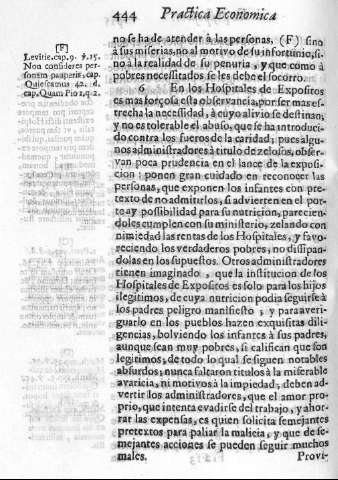 444 Practica Economica
(F)
Levitic. cap. 9. ℣. 15.
Non consideres per-
sonam pauperis, cap.
Quiescamus 42. d.
cap. Quam Pio 1. q. 2.
no se ha de atender à las personas, (F) sino
à sus miserias, no al motivo de su infortunio, si-
no à la realidad de su penuria, y que como à
pobres necessitados se les debe el socorro.
6 En los Hospitales de Expositos
es mas forçosa esta observancia, por ser mas es-
trecha la necessidad, à cuyo alivio se destinan;
y no es tolerable el abuso, que se ha introduci-
do contra los fueros de la caridad; pues algu-
nos administradores à titulo de zelosos, obser-
van poca prudencia en el lance de la exposi-
cion: ponen gran cuidado en reconocer las
personas, que exponen los infantes con pre-
texto de no admitirlos, si advierten en el por-
te ay possibilidad para su nutricion, parecien-
doles cumplen con su ministerio, zelando con
nimiedad las rentas de los Hospitales, y favo-
reciendo los verdaderos pobres, no dissipan-
dolas en los supuestos. Otros administradores
tienen imaginado, que la institucion de los
Hospitales de Expositos es solo para los hijos
ilegitimos, de cuya nutricion podia seguirse à
los padres peligro manifiesto; y para averi-
guarlo en los pueblos hazen exquisitas dili-
gencias, bolviendo los infantes à sus padres,
aunque sean muy pobres, si califican que son
legitimos; de todo lo qual se siguen notables
absurdos; nunca faltaron titulos à la miserable
avaricia, ni motivos à la impiedad; deben ad-
vertir los administradores, que el amor pro-
prio, que intenta evadirse del trabajo, y ahor-
rar las expensas, es quien solicita semejantes
pretextos para paliar la malicia, y que de se-
mejantes acciones se pueden seguir muchos
males. Provi-